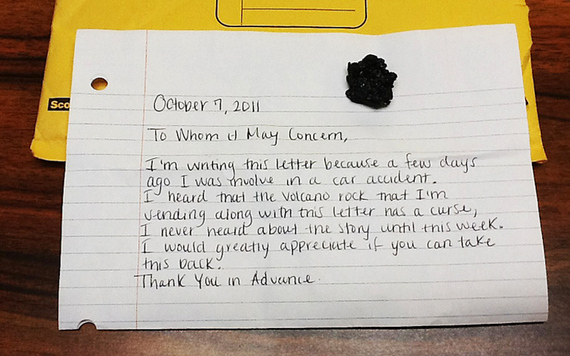 Sco
October 7, 2011
To Whom it May Concern,
I'm writing this letter because a few days
ago I was involve in a car accident.
I heard that the volcano rock that I'm
sending along with this letter has a curse,
I never heard about the story until this week.
I would greatly appreciate if you can take
this back.
Thank You in Advance.